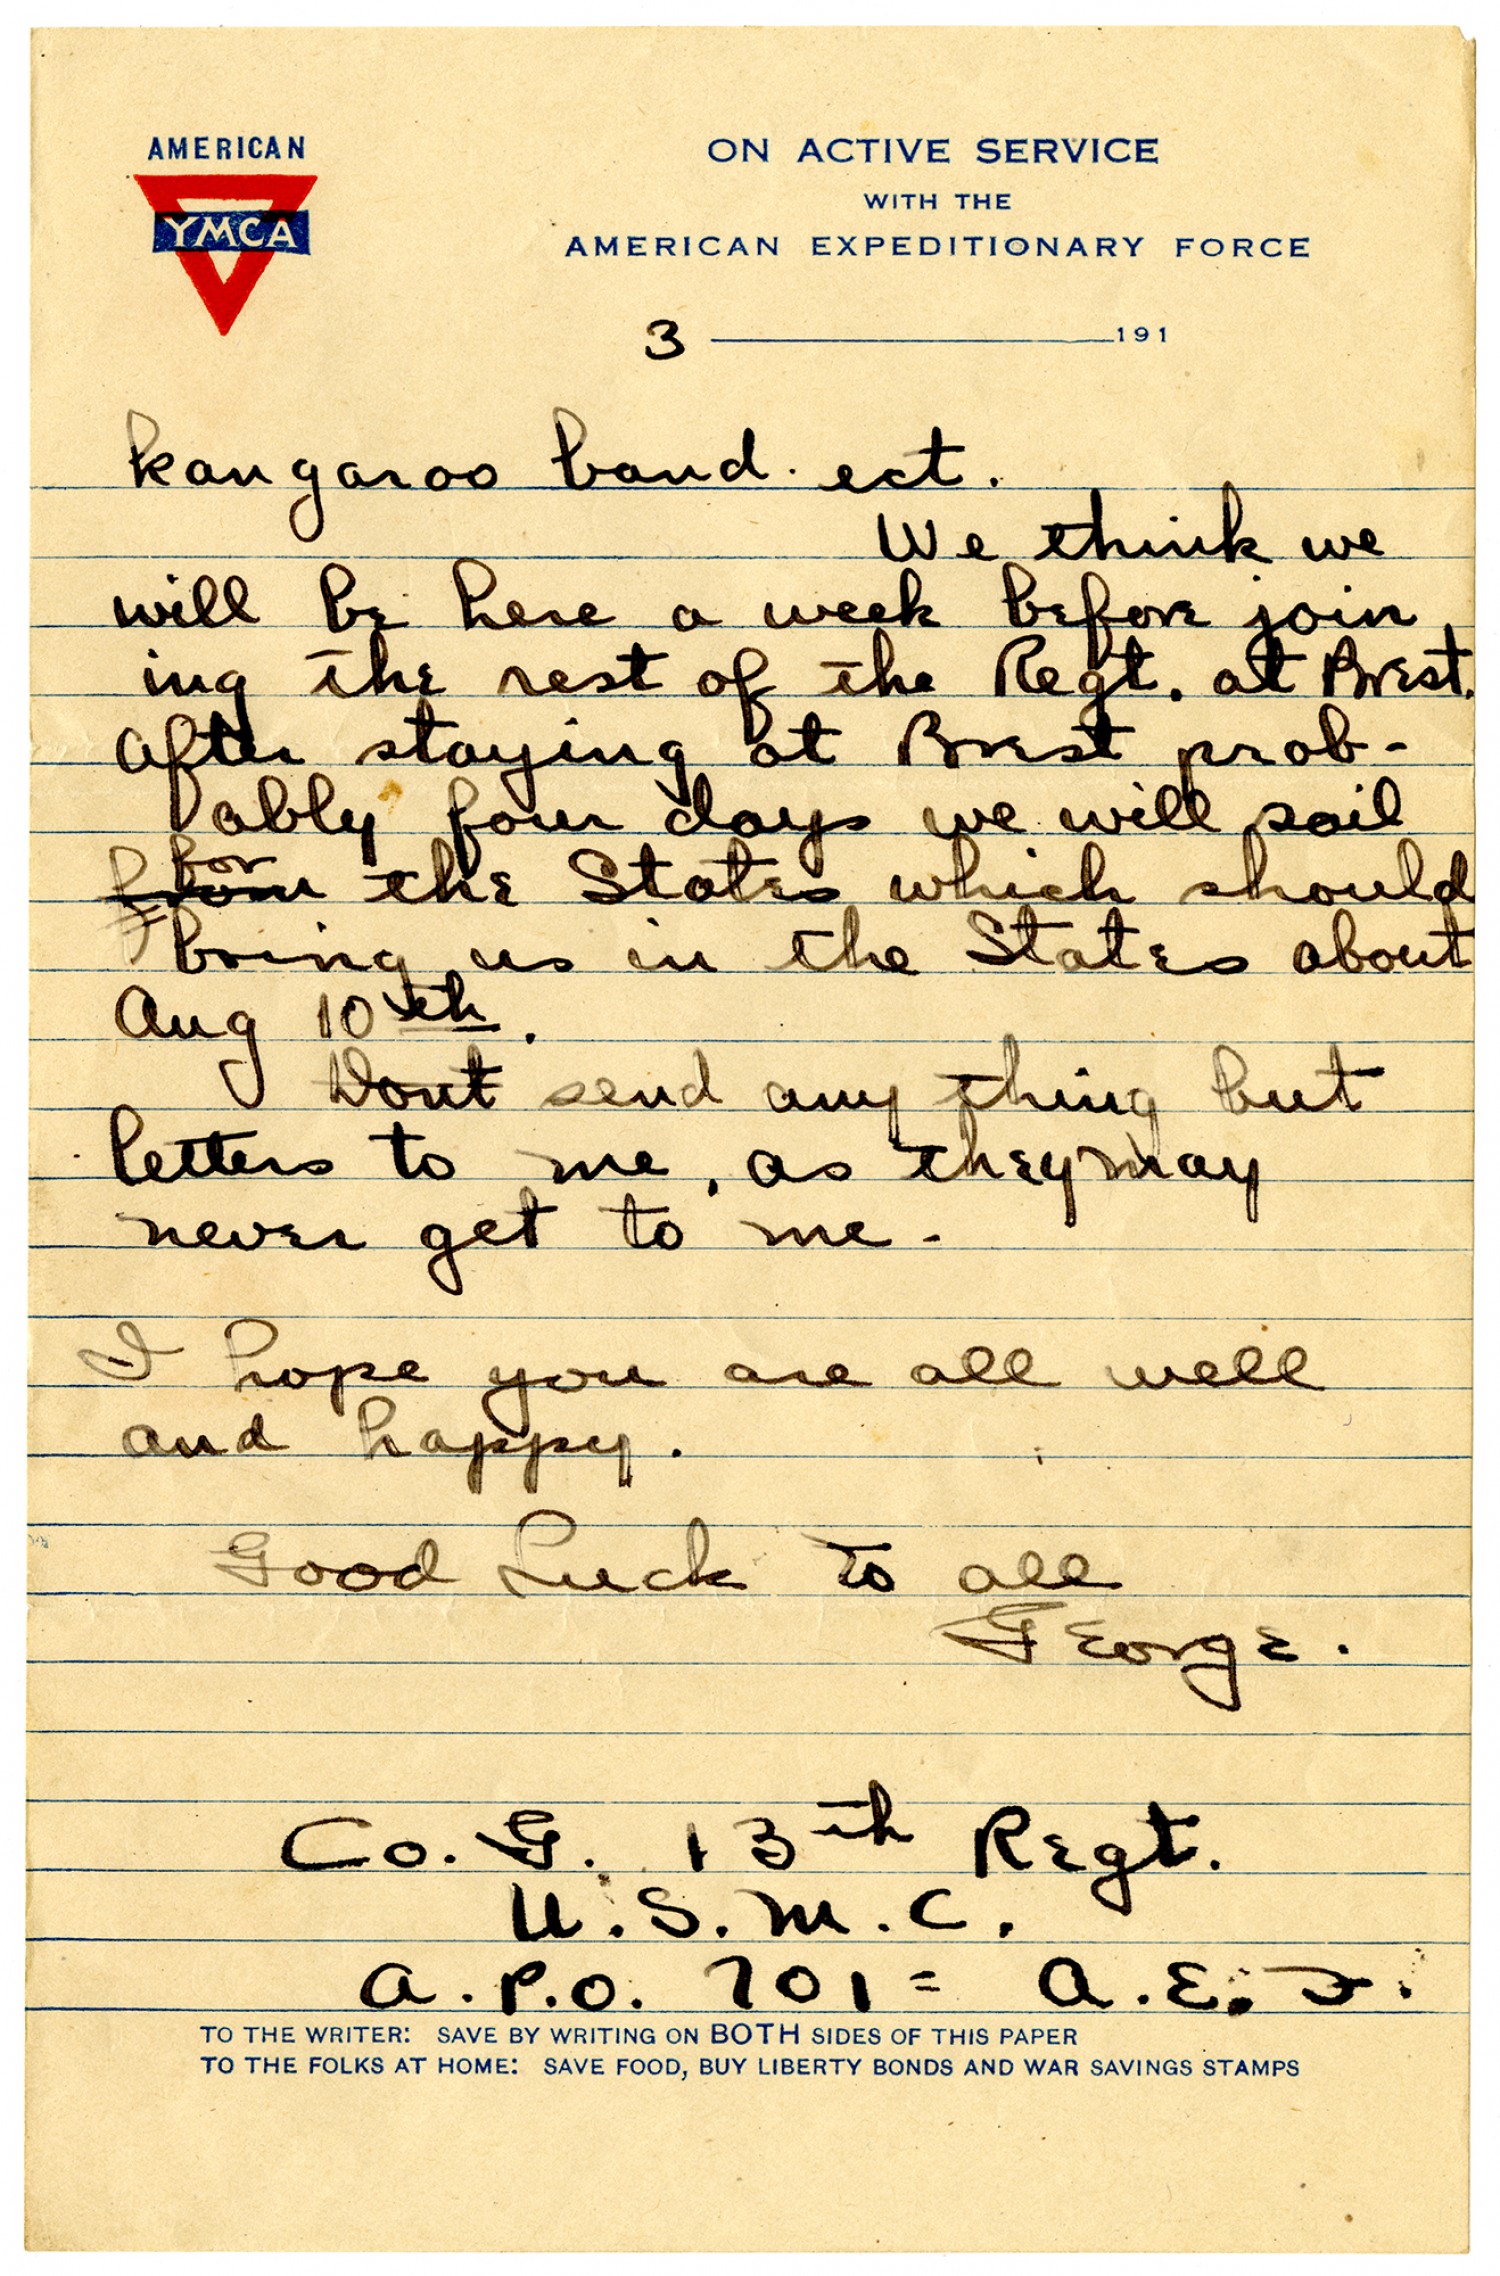 AMERICAN
YMCA
ON ACTIVE SERVICE
WITH THE
AMERICAN EXPEDITIONARY FORCE
3 191
kangaroo band. ect.
We think we
will be here a week before join
ing the rest of the Regt. at Brest.
After staying at Brest prob-
ably four days we will sail
for
from the States which should
bring us in the States about
Aug 10th.
Dont send any thing but
letters to me, as they may
never get to me.
I hope you are all well
and happy.
Good Luck to all
George.
Co. G. 13th Regt.
U.S.M.C.
A.P.O. 701 = A.E.F.
TO THE WRITER: SAVE BY WRITING ON BOTH SIDES OF THIS PAPER
TO THE FOLKS AT HOME: SAVE FOOD, BUY LIBERTY BONDS AND WAR SAVINGS STAMPS